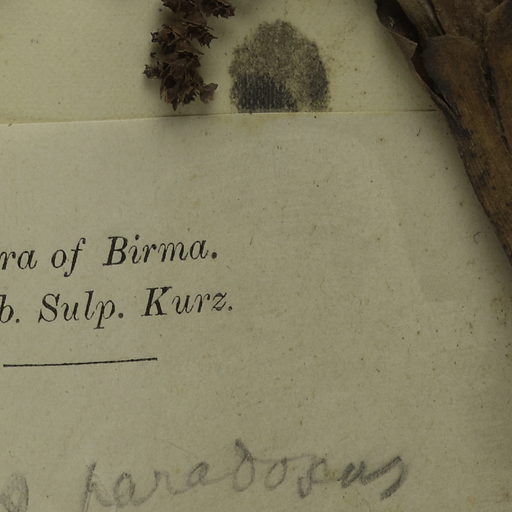 ra of Birma.
b. Sulp. Kurz.
paradoxus